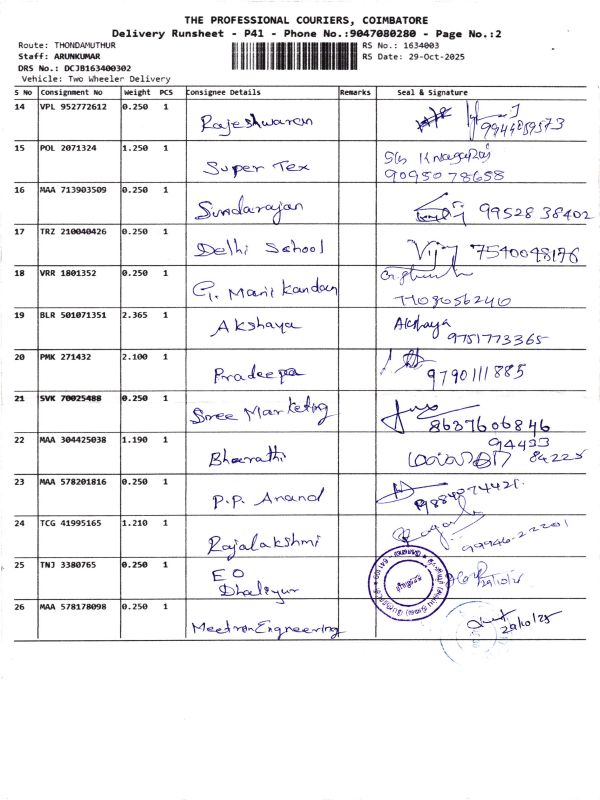 THE PROFESSIONAL COURIERS, COIMBATORE
Delivery Runsheet - P41 - Phone No.:9047080280 - Page No.:2
Route: THONDAMUTHUR RS No.: 1634003
Staff: ARUNKUMAR RS Date: 29-Oct-2025
DRS No.: DCJB163400302
Vehicle: Two Wheeler Delivery
S No Consignment No Weight PCS Consignee Details Remarks Seal & Signature
14 VPL 952772612 0.250 1 Rajeshwaran
15 POL 2071324 1.250 1 Super Tex
9095078658
16 MAA 713903509 0.250 1 Sundarajan 99528 38402
17 TRZ 210040426 0.250 1 Delhi School Vijay 7540048176
18 VRR 1801352 0.250 1 G. Manikandan
19 BLR 501071351 2.365 1 Akshaya Akshaya
9751773365
20 PMK 271432 2.100 1 Pradeepa 9790111885
21 SVK 70025488 0.250 1 Sree Marketing 8637606846
22 MAA 304425038 1.190 1 Bharathi 94433
84225
23 MAA 578201816 0.250 1 P.P. Anand
24 TCG 41995165 1.210 1 Rajalakshmi 99946-22201
25 TNJ 3380765 0.250 1 EO
Dhaliyur 29/10/25
26 MAA 578178098 0.250 1 Meetron Engneering 29/10/25